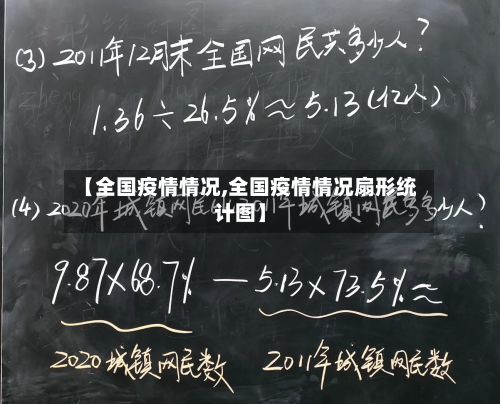 (3) 2011年12月末全国网民共多少人?
1.36÷26.5%≈5.13(亿人)
【全国疫情情况,全国疫情情况扇形统
计图】
(4) 2020年城镇网民比2011年城镇网民多多少人?
9.87×68.7% — 5.13×73.5%≈
2020城镇网民数 2011年城镇网民数